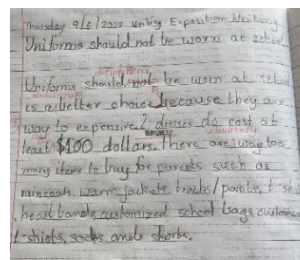 Thursday 9/6/2020 Writing
Uniforms should not be worn at school
Uniforms should not be worn at school
is a better choice because they are
way to expensive. 2 dresses do cost at
least $100 dollars. There are way too
many items to buy for parents such as
raincoats, warm jackets tracks/pants, t-shi
head bands, customized school bags, customise
t-shirts, socks and shorts.